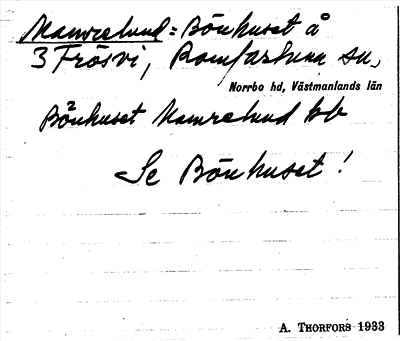 Mamrelund = Bönhuset å
3 Frösvi, Romfartuna sn,
Norrbo hd, Västmanlands län
Bönhuset Mamrelund bb
Se Bönhuset!
A. THORFORS 1933